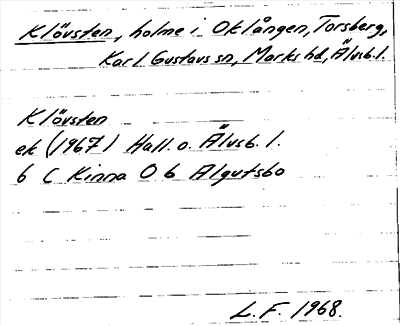 Klövsten, holme i Oklången, Torsberg,
Karl Gustavs sn, Marks hd, Älvsb. l.
Klövsten
ek (1967) Hall. o. Älvsb. l.
6 C Kinna 0 b Älgutsbo
L. F. 1968.